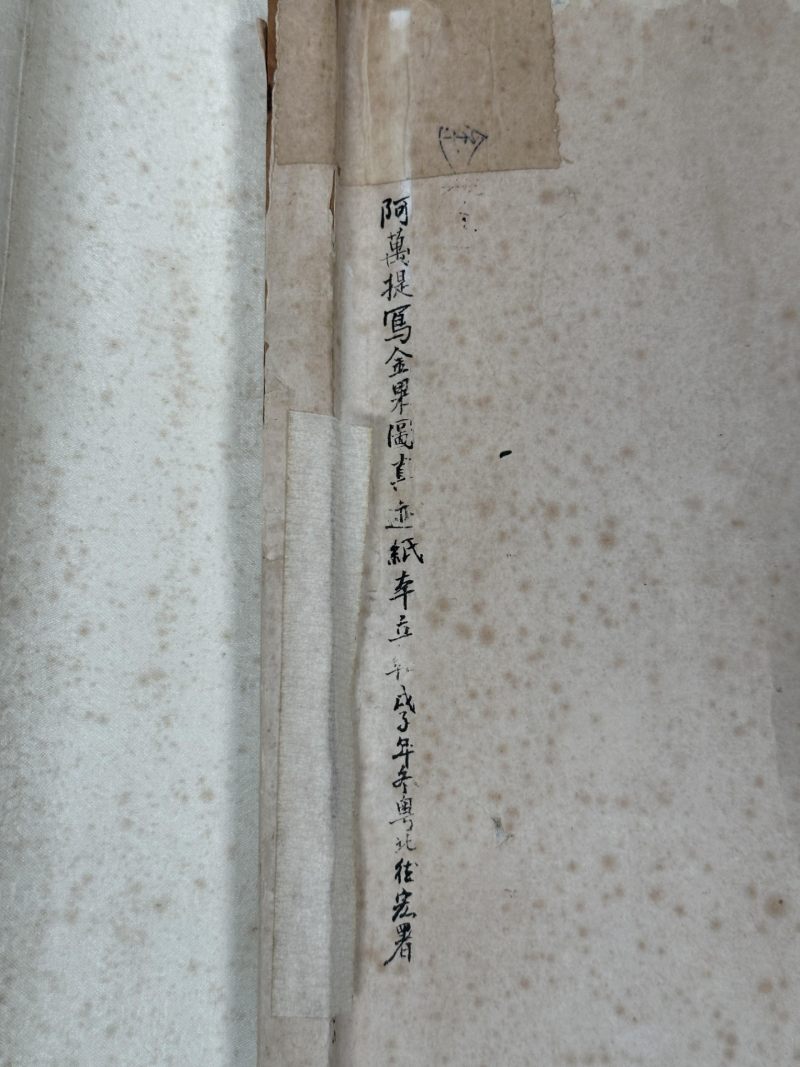 金
阿萬提寫金果圖真迹紙本立軸戊子年冬粵北德宏署